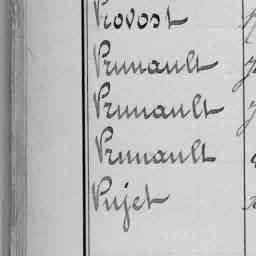 Provost
Prunault
Prunault
Prunault
Pujet